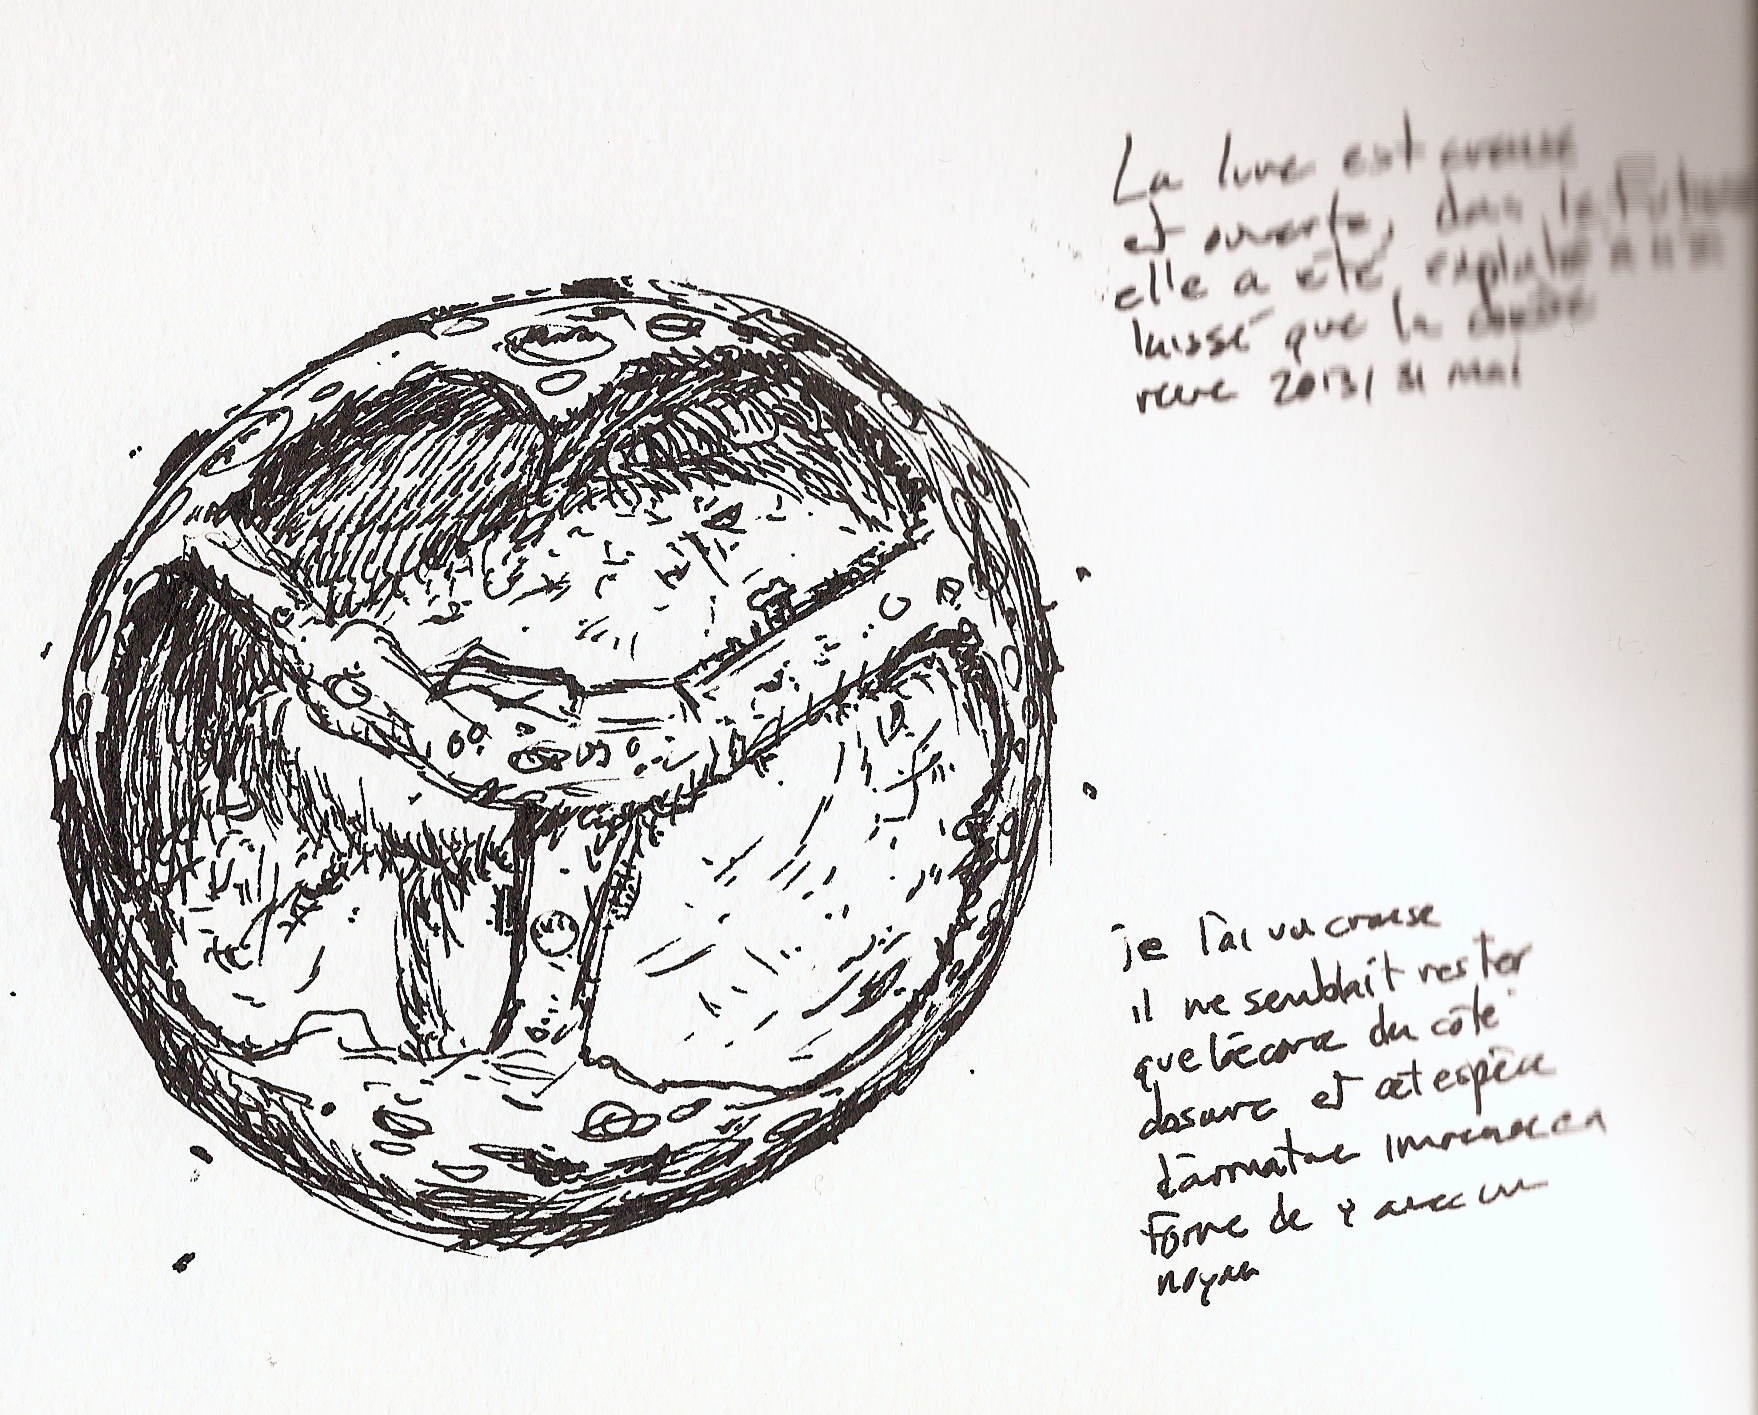 La lune est creuse
et ouverte, dans le futur
elle a été exploité
laissé que la croute
reve 2013/ 31 mai
je l'ai vu creuse
il ne semblait rester
que l'écorce du côté
obscure et cet espèce
d'armature immense en
forme de Y avec un
noyau